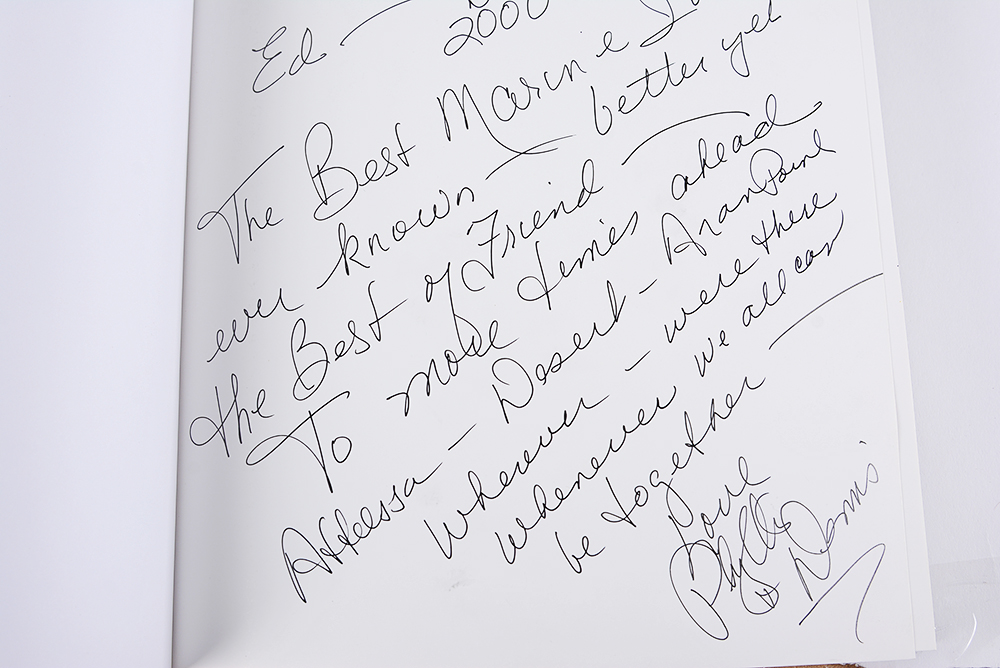 Ed —
2000
The Best Marine I
ever known — better yet
the Best of Friend —
To more times ahead
Attessa — Desert — Aran Point
Wherever — were there
Whenever we all can
be together —
Love
Phyllis
& Dennis